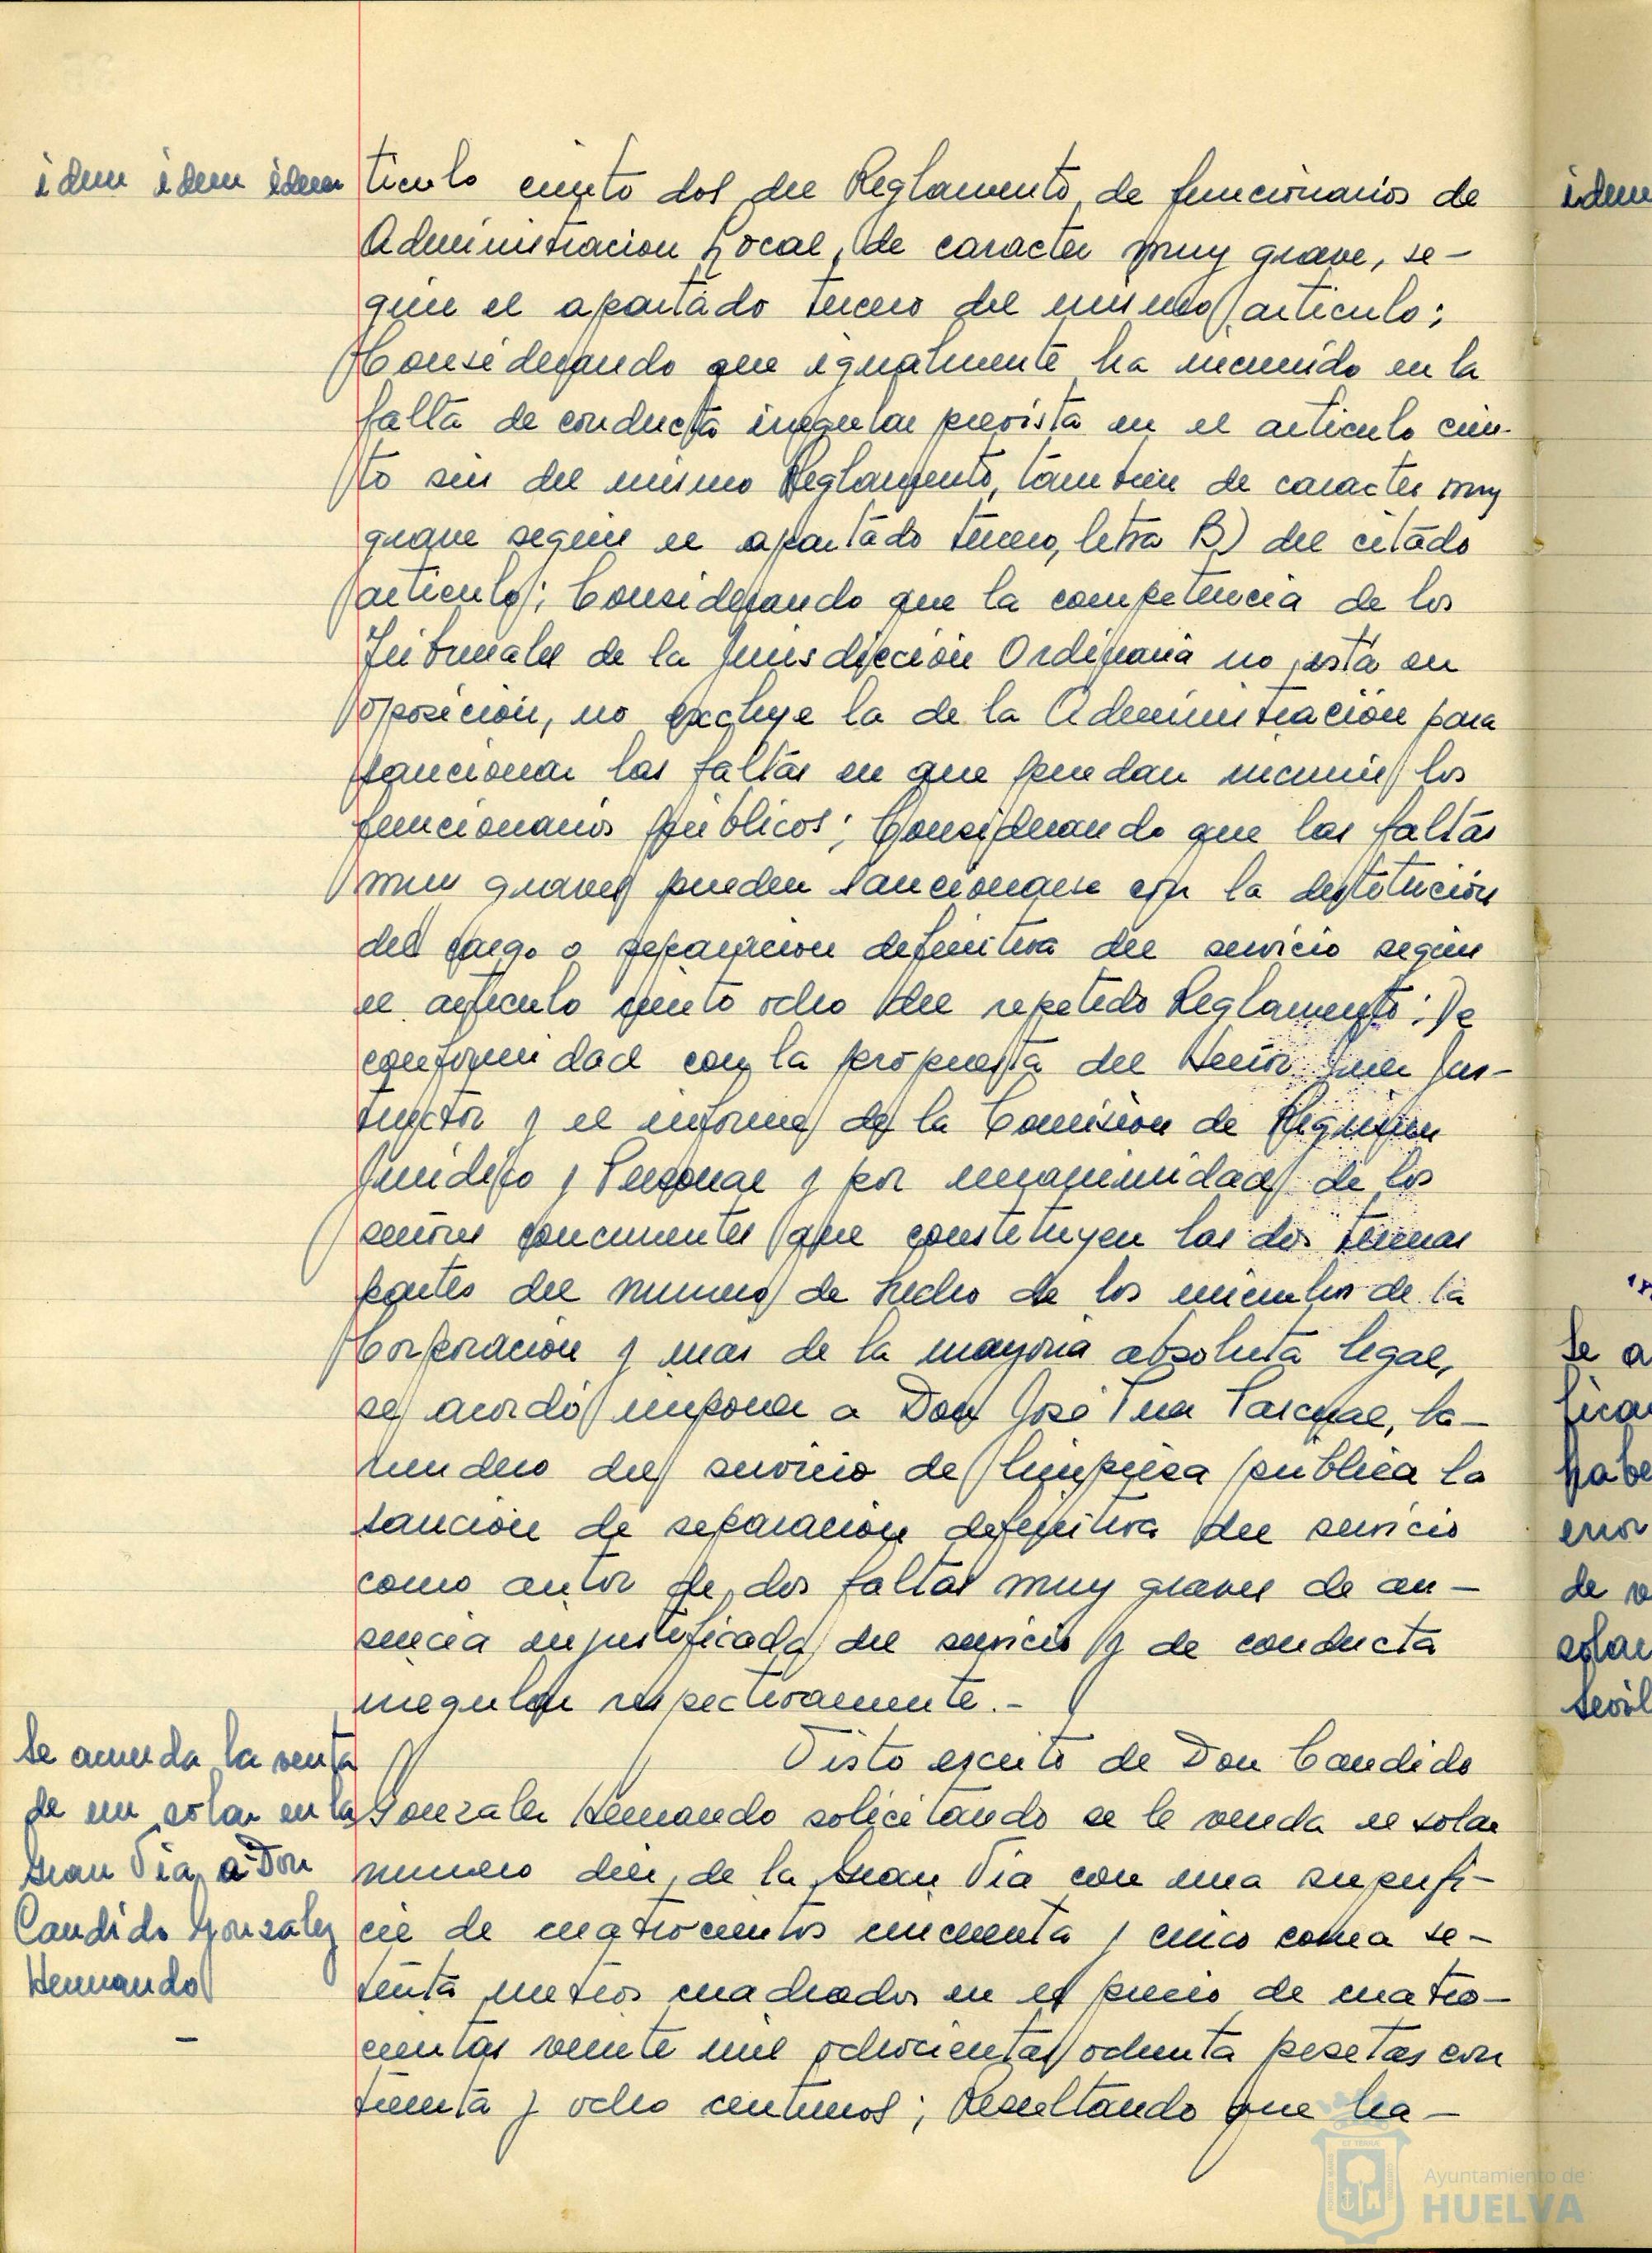 idem idem idem
ticulo ciento dos del Reglamento de funcionarios de
Administracion Local, de caracter muy grave, se-
gún el apartado tercero del mismo articulo;
Considerando que igualmente ha incurrido en la
falta de conducta irregular prevista en el articulo cien-
to seis del mismo Reglamento, tambien de caracter muy
grave según el apartado tercero, letra B) del citado
articulo; Considerando que la competencia de los
Tribunales de la Jurisdicción Ordinaria no está en
oposición, no excluye la de la Administración para
sancionar las faltas en que puedan incurrir los
funcionarios públicos; Considerando que las faltas
muy graves pueden sancionarse con la destitución
del cargo o separacion definitiva del servicio según
el articulo ciento ocho del repetido Reglamento; De
conformidad con la propuesta del Señor Juez Ins-
tructor y el informe de la Comision de Régimen
Juridico y Personal y por unanimidad de los
señores concurrentes que constituyen las dos terceras
partes del numero de hecho de los miembros de la
Corporación y mas de la mayoria absoluta legal,
se acordó imponer a Don José Pascual, ba-
rrendero del servicio de limpieza pública la
sanción de separación definitiva del servicio
como autor de dos faltas muy graves de au-
sencia injustificada del servicio y de conducta
irregular respectivamente.-
Se acuerda la venta
de un solar en la
Gran Via a Don
Candido Gonzalez
Hernando
-
Visto escrito de Don Candido
Gonzalez Hernando solicitando se le venda el solar
numero diez de la Gran Via con una superfi-
cie de cuatrocientos cincuenta y cinco coma se-
tenta metros cuadrados en el precio de cuatro-
cientas veinte mil ochocientas ochenta pesetas con
treinta y ocho centimos; Resultando que ha-
idem
Se a
ficar
habe
error
de v
solar
Sevil
Ayuntamiento de
HUELVA